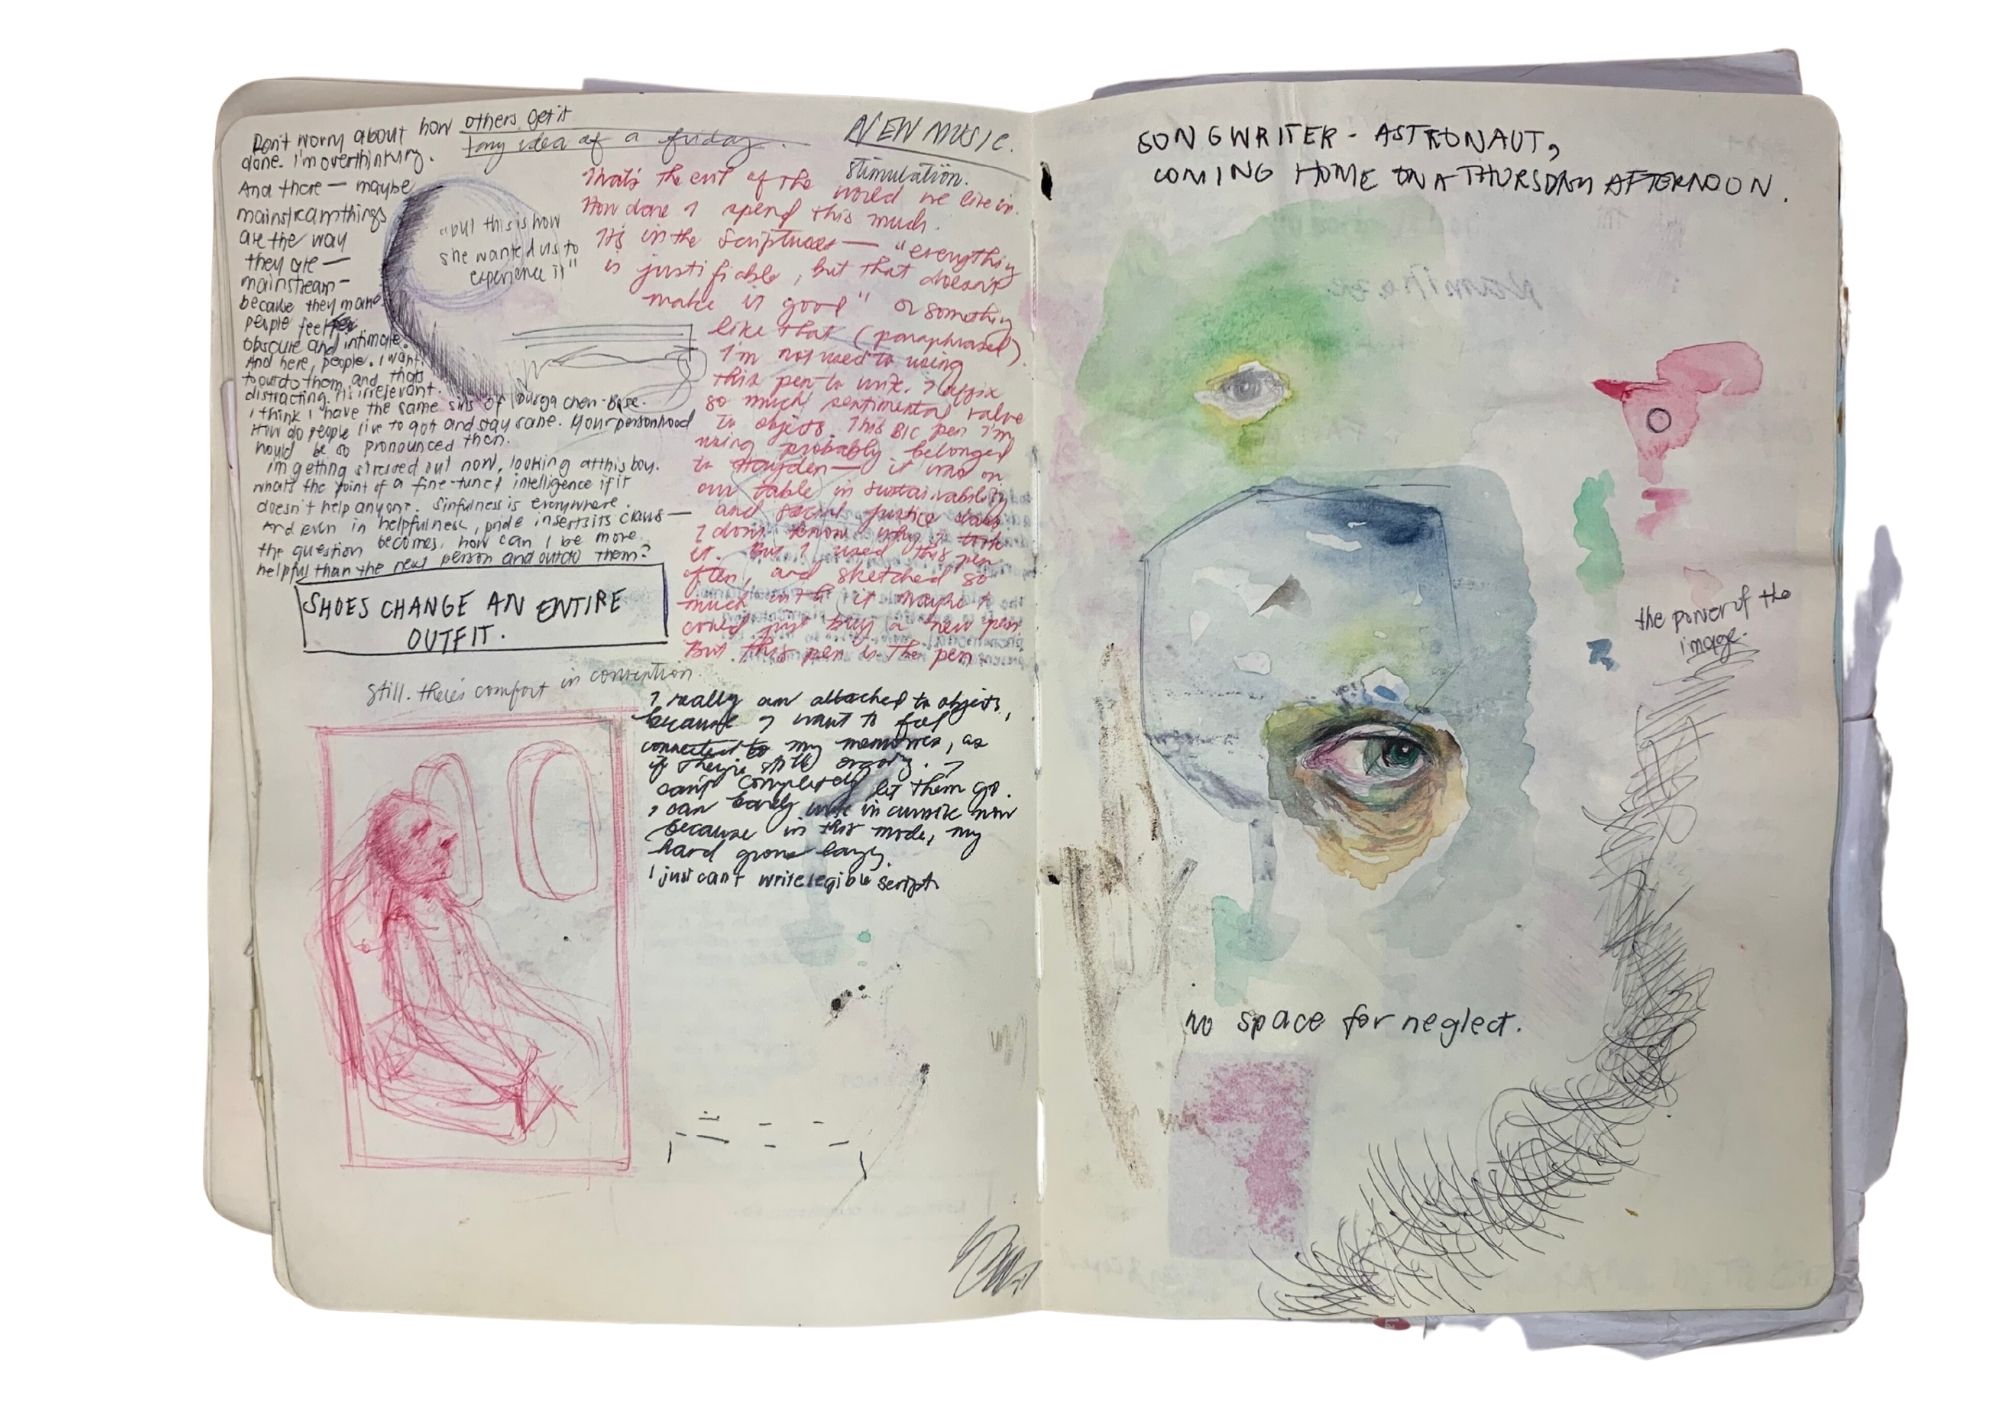 Don't worry about how others get it
done. I'm overthinking.
And there — maybe
mainstream things
are the way
they are —
mainstream —
because they make
people feel
obscure and intimate.
And here, people. I want
to outdo them, and that's
distracting. It's irrelevant.
I think I have the same sins of Durga Chew-Bose.
How do people live to 90 and stay sane. Your personhood
would be so pronounced then.
I'm getting stressed out now, looking at this boy.
whats the point of a fine-tuned intelligence if it
doesn't help anyone. Sinfulness is everywhere.
And even in helpfulness, pride inserts its claws —
the question becomes, how can I be more
helpful than the next person and outdo them?
idea of a friday.
NEW MUSIC.
stimulation.
"but this is how
she wanted us to
experience it"
That's the evil of the world we live in.
How dare I spend this much.
It's in the scriptures — "everything
is justifiable, but that doesn't
make it good" or something
like that (paraphrased).
I'm not used to using
this pen to write. I affix
so much sentimental value
to objects. This BIC pen I'm
using probably belonged
to Hayden — it was on
our table in sustainability
and social justice class
I don't know why I took
it. But I used this pen
often, and sketched so
much with it maybe I
could just buy a new pen
But this pen is the pen.
SHOES CHANGE AN ENTIRE
OUTFIT.
Still. there's comfort in convention.
I really am attached to objects,
because I want to feel
connected to my memories, as
if they're still ongoing. I
can't completely let them go.
I can barely write in cursive now
because in this mode, my
hand grows lazy.
I just can't write legible script
SONGWRITER - ASTRONAUT,
COMING HOME ON A THURSDAY AFTERNOON.
the power of the
image.
no space for neglect.